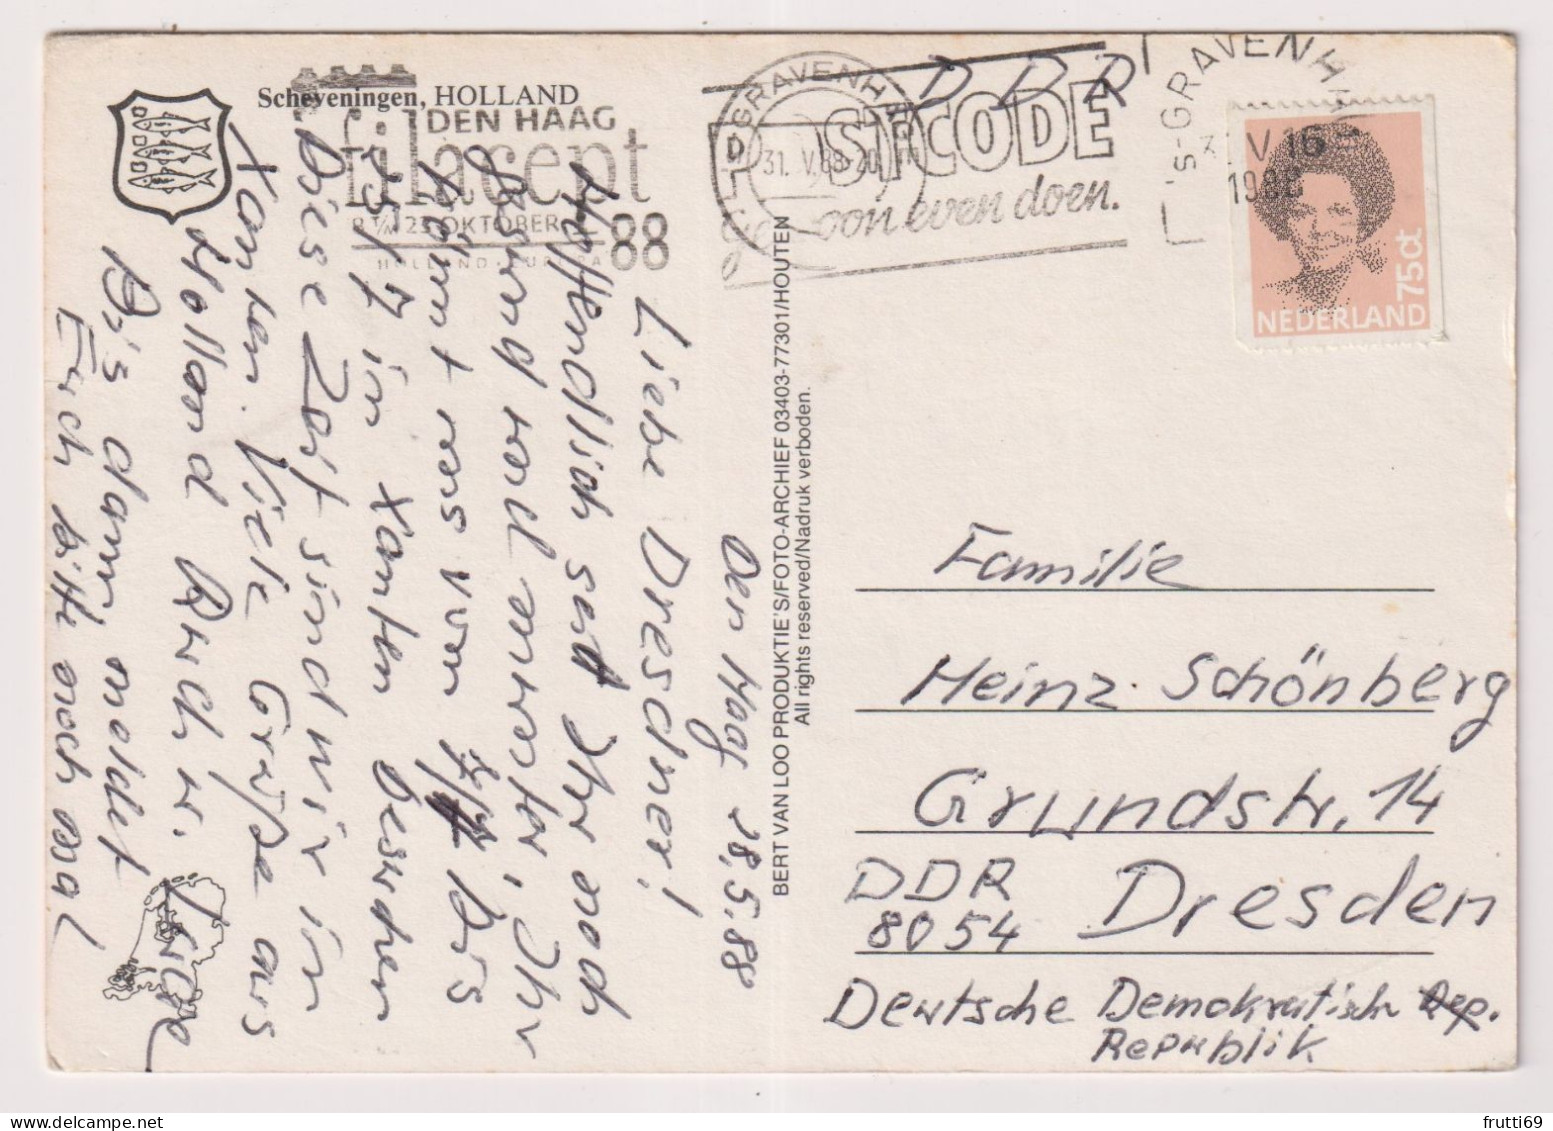 Scheveningen, HOLLAND
DEN HAAG
filacept
88
HOLLAND · EUROPA
's-GRAVENHAGE
31. V. 88-20
POSTCODE
gewoon even doen.
DDR
's-GRAVENHA
V 16
1988
75ct
NEDERLAND
BERT VAN LOO PRODUKTIE'S/FOTO-ARCHIEF 03403-77301/HOUTEN
All rights reserved/Nadruk verboden.
Den Haag 28.5.88
Liebe Dresdner!
Hoffendlich seit Ihr noch
gesund und munter, Ihr
könnt uns vom
Bis
in Xanten besuchen
Diese Zeit sind wir in
Xanten. Viele Grüße aus
Holland
Bis dann meldet
Euch bitte noch mal
Familie
Heinz Schönberg
Grundstr. 14
DDR
8054 Dresden
Deutsche Demokratische Rep.
Republik
frutti69